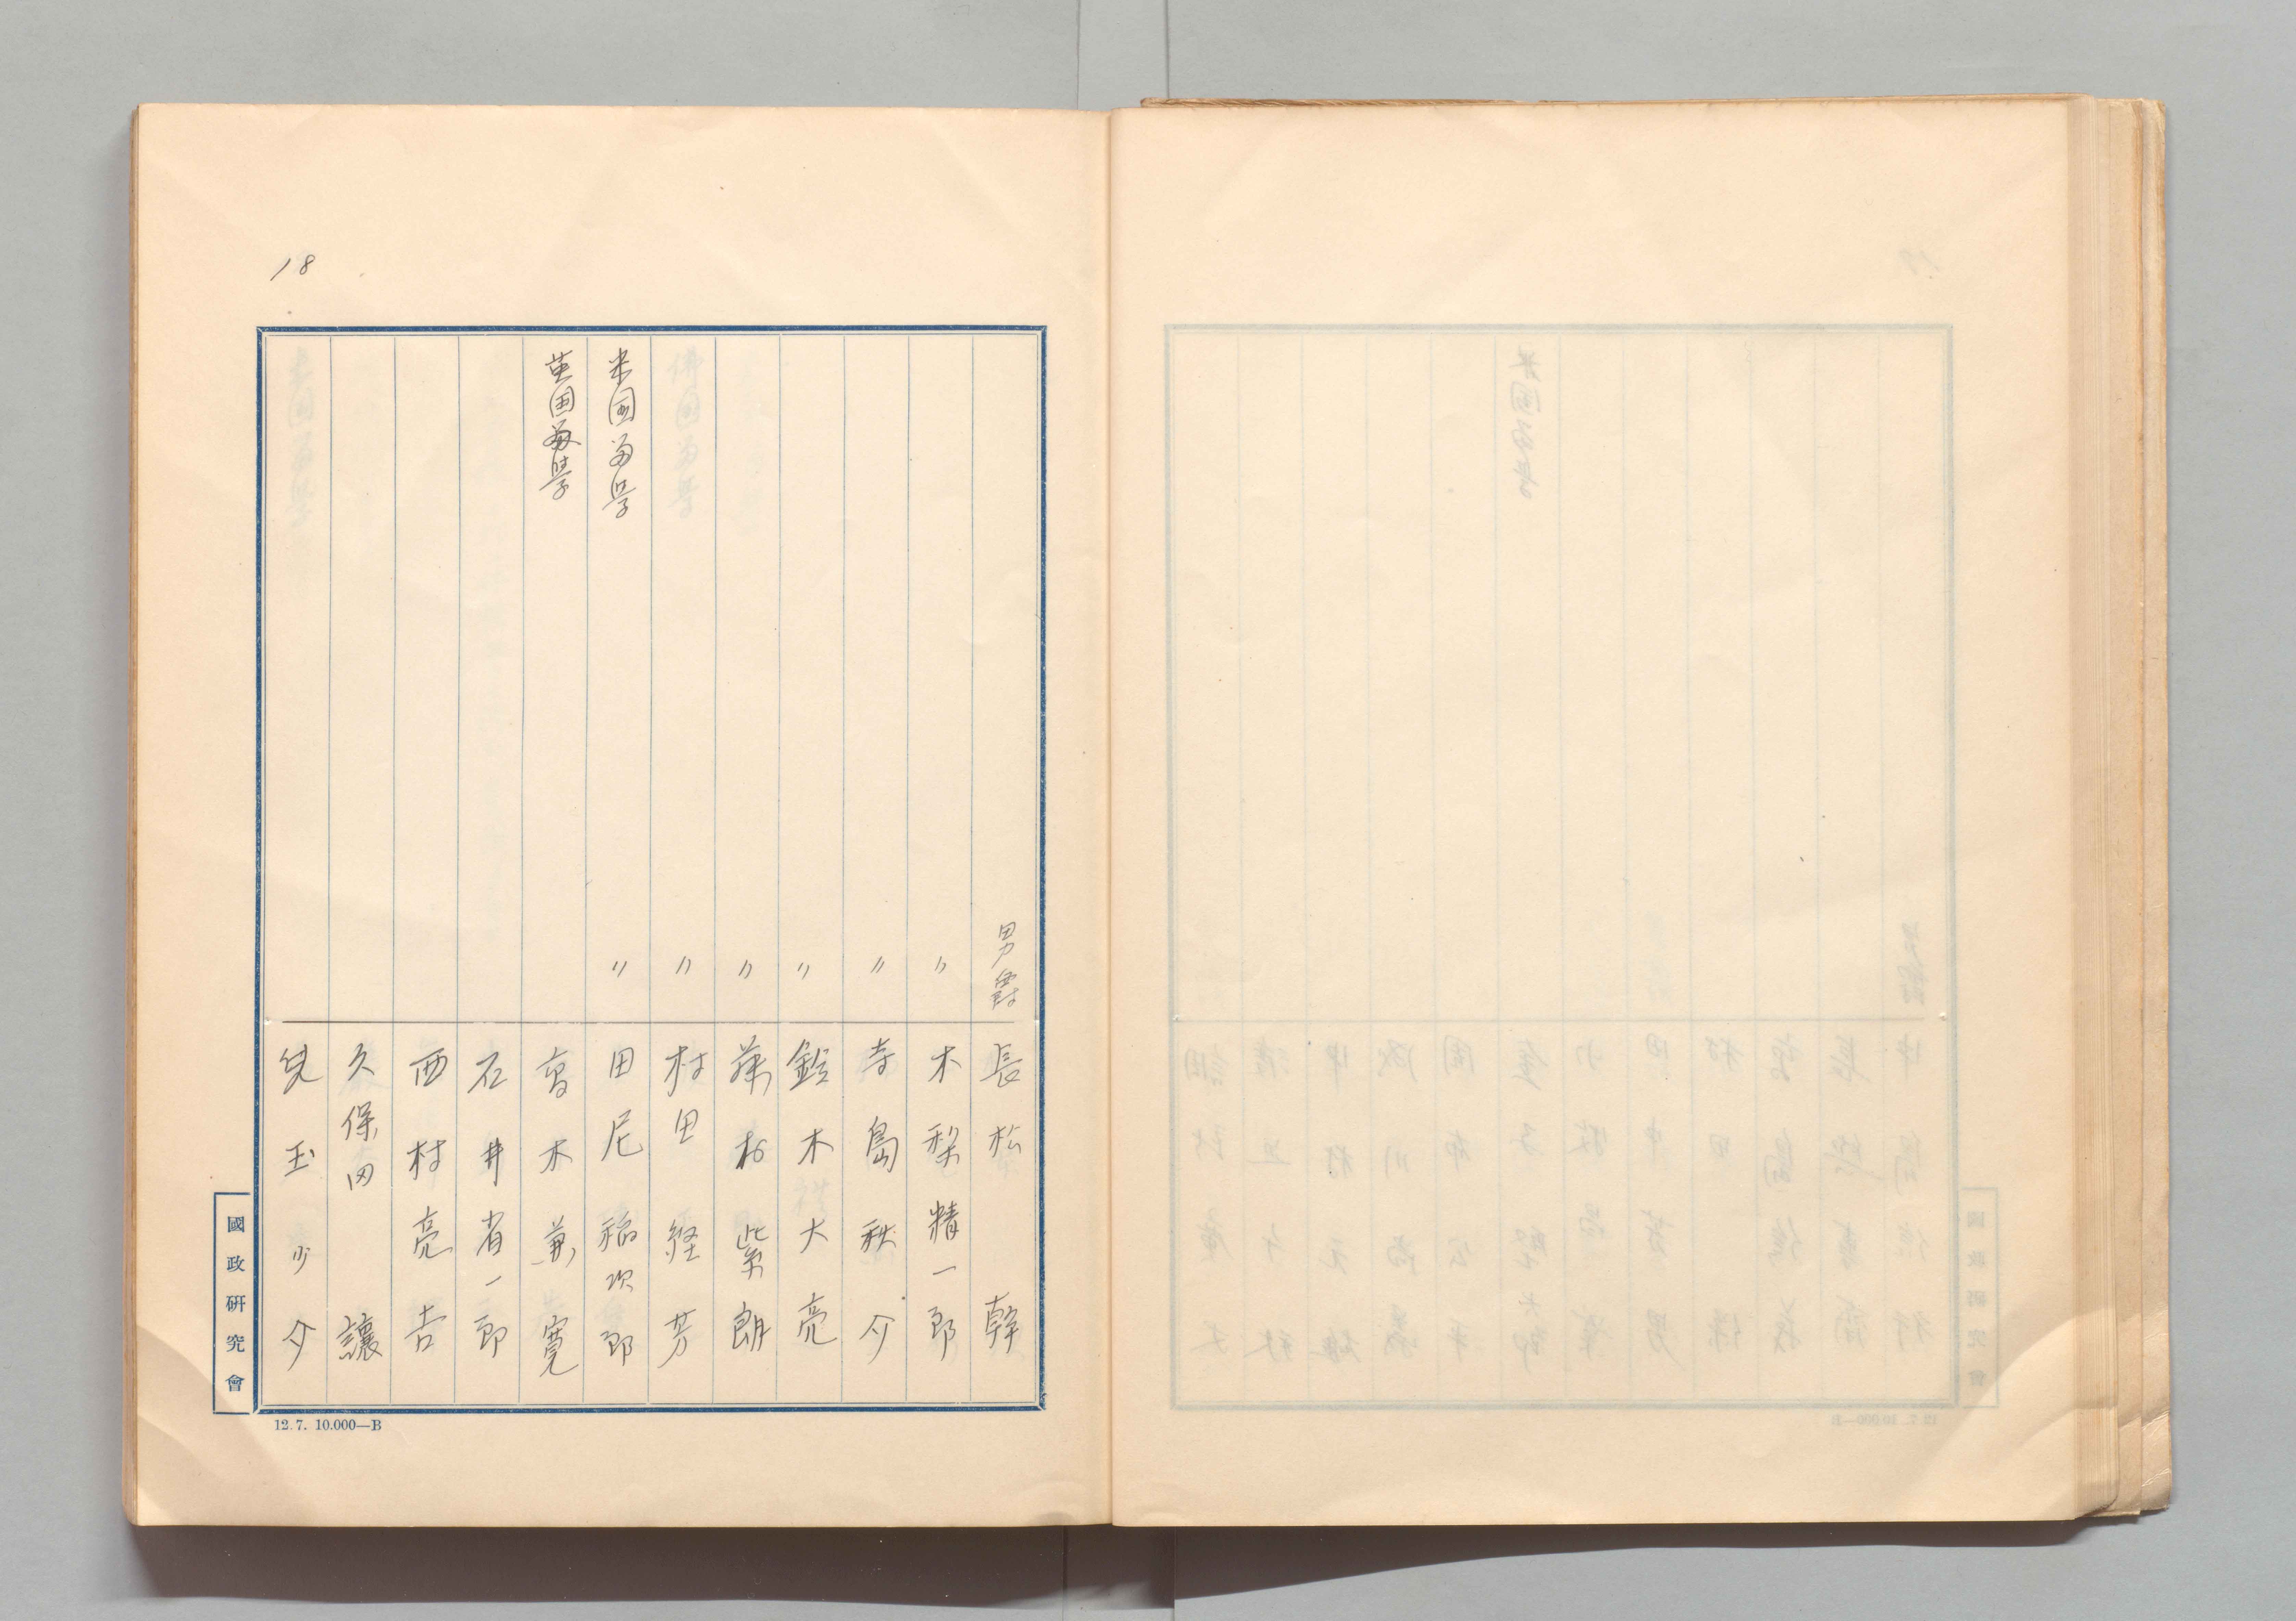 18
男爵 長松 幹
〃 木梨精一郎
〃 寺島秋介
〃 鈴木大亮
〃 藤村紫朗
〃 村田経芳
米国留学 〃 田尼稲次郎
英国留学 高木兼寛
石井省一郎
西村亮吉
久保田 讓
児玉少介
國政研究會
12.7. 10.000—B